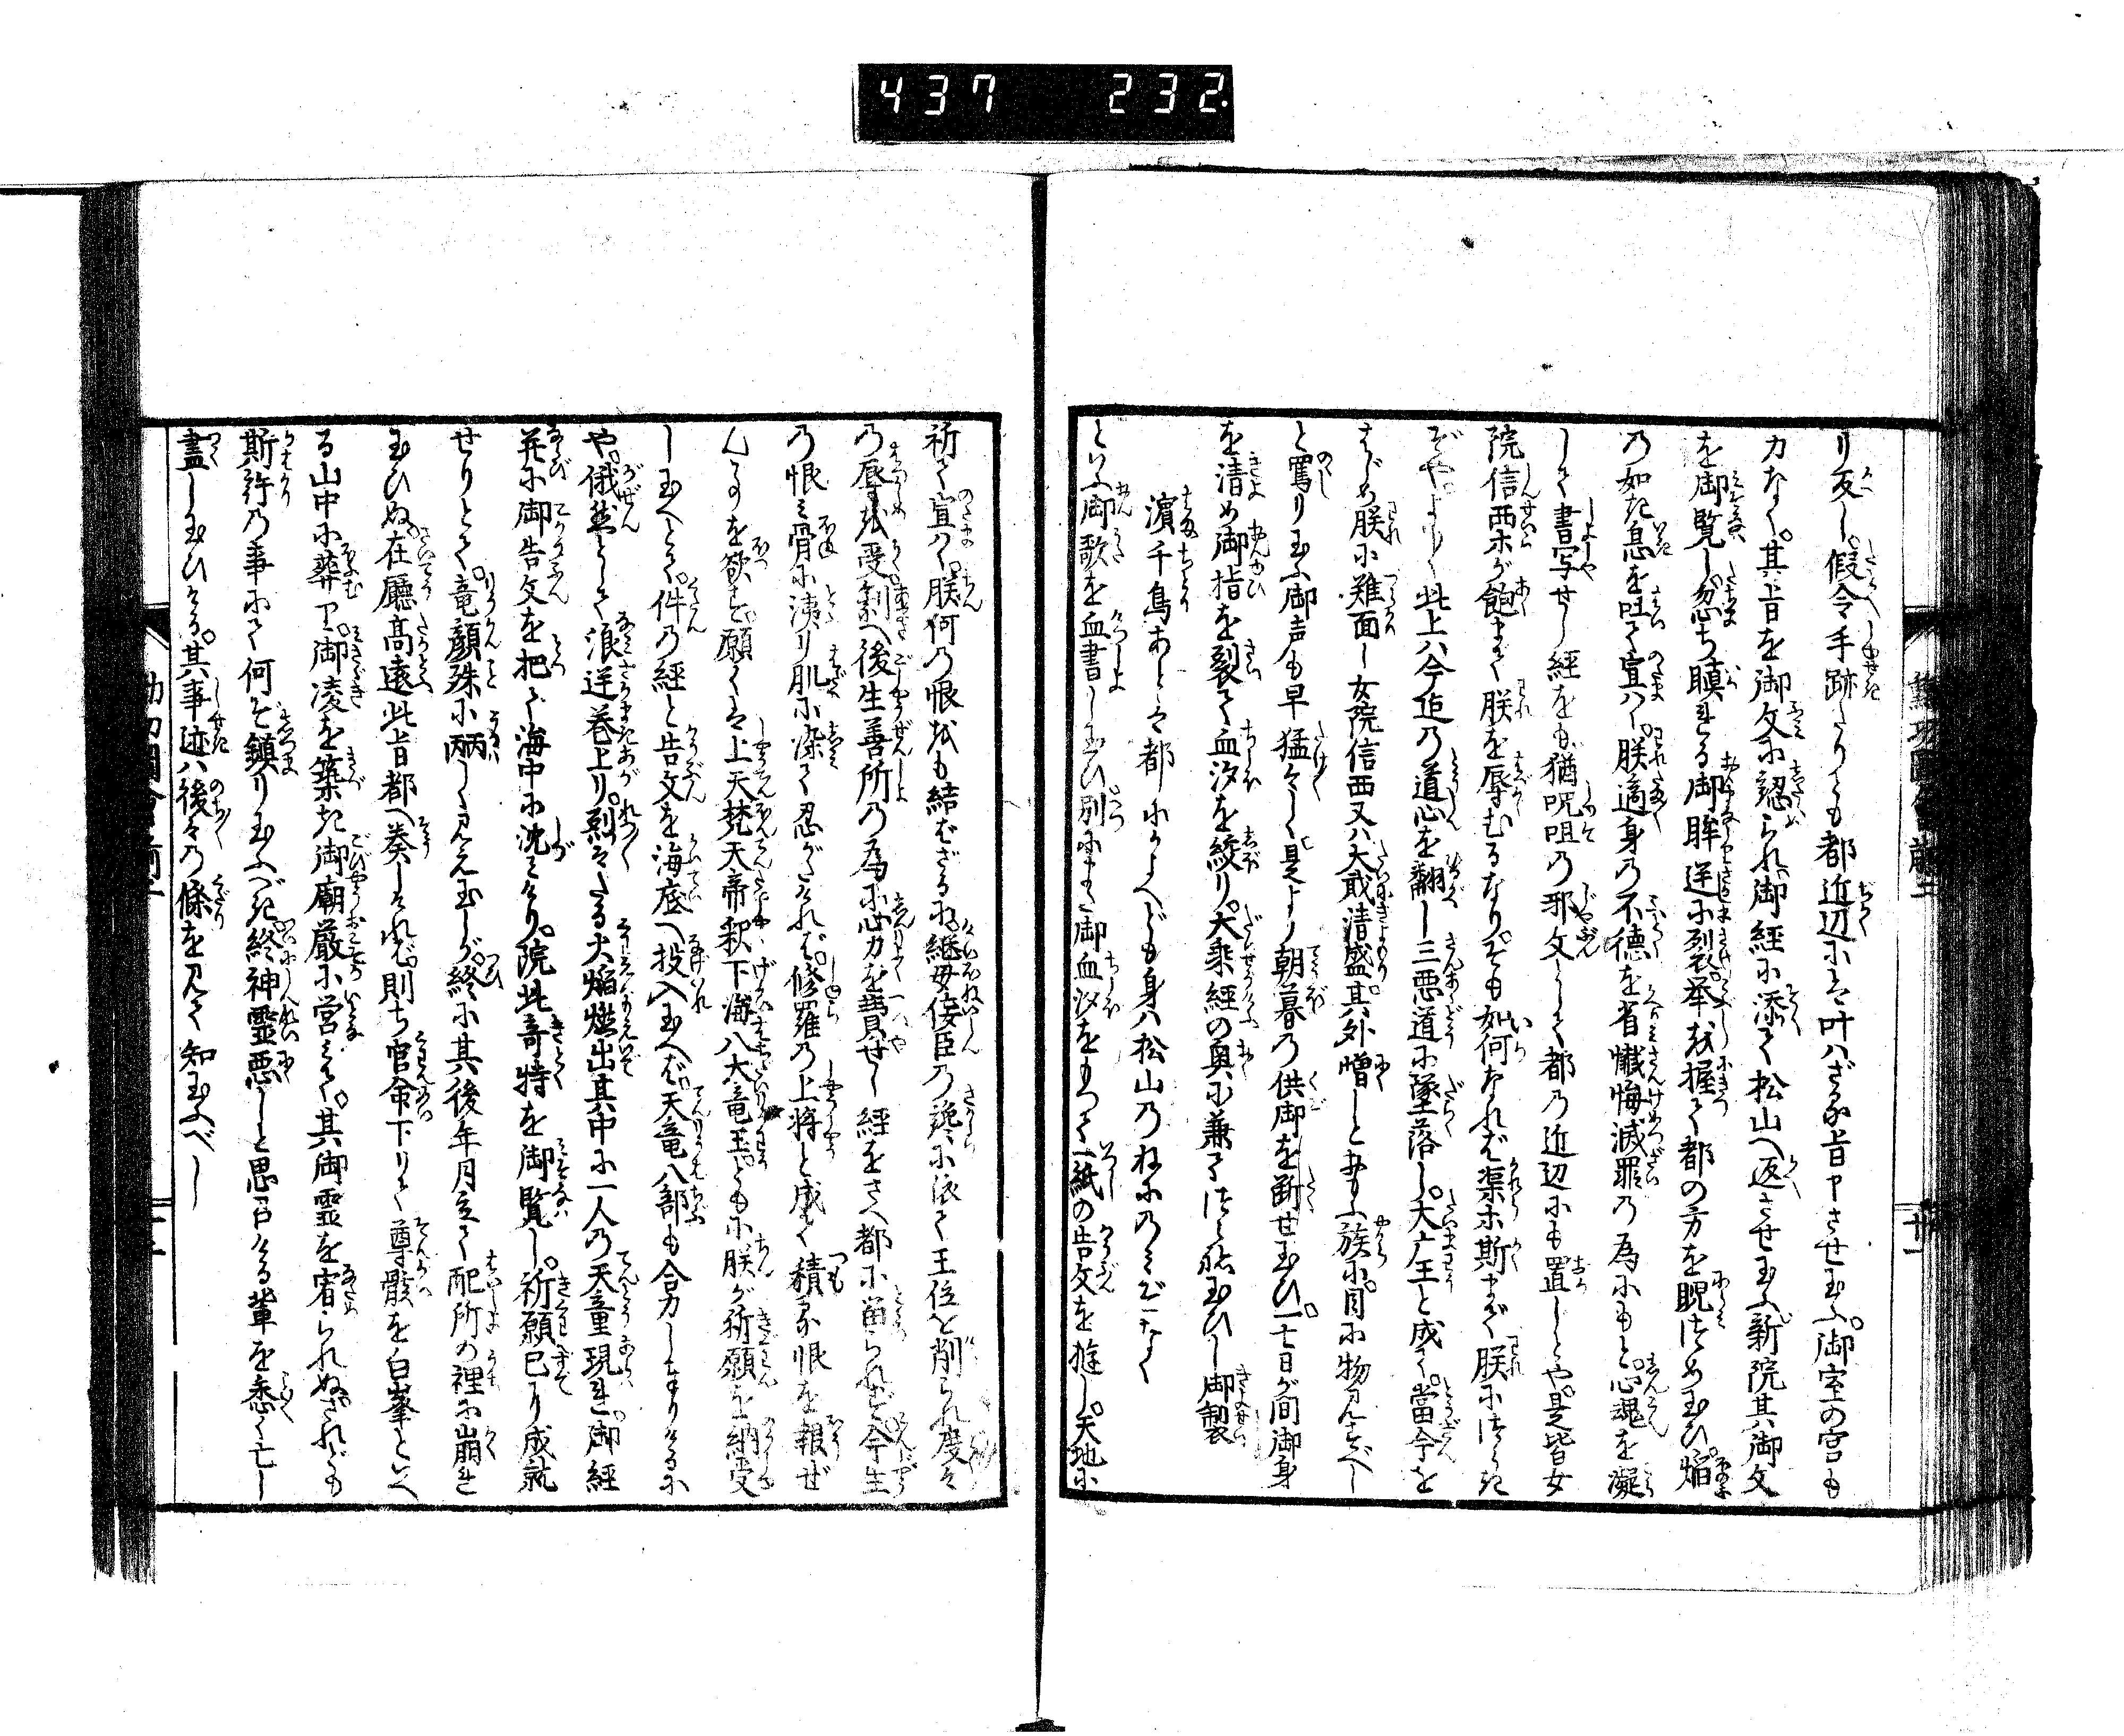 437 232.
り返し。假令手跡たりとも都近辺には叶はざる旨申させ玉ふ。御室の宮も
力なく。其旨を御文に認られ御経に添て松山へ返させ玉ふ新院其御文
を御覧し忽ち瞋れる御眸逆に裂挙を握て都の方を睨つめ玉ひ。焔
の如き息を吐て宣はく。朕適身の不徳を省懺悔滅罪の為にもと。心魂を凝
して書写せし経をも猶呪咀の邪文として都の近辺にも置じとや。是皆女
院信西ホが飽まで朕を辱むるなり。そも如何なれば渠ホ斯まで朕につらき
ぞや。よし〳〵此上ハ今迄の道心を翻し三悪道に墜落し。大广王と成て。當今を
はじめ朕に難面し女院信西又ハ大貳清盛。其外憎しと思ふ族に。目に物見すべし
と罵り玉ふ御声も早猛々しく是より朝暮の供御を断せ玉ひ。一七日が間御身
を清め御指を裂て血汐を絞り。大乗経の奥に兼てつらね玉ひし御製
濱千鳥あとは都にかよへども身ハ松山のねにのみぞなく
といふ御歌を血書し玉ひ別にまた御血汐をもつて一紙の告文を遊し。天地に
祈て宣はく。朕何の恨をも結ばざるに継母侫臣の讒に依て王位を削られ度々
の辱を受剰へ後生善所の為に心力を費せし経をさへ都に留られず。今生
の恨ミ骨に洟り肌に染て忍がたければ。修羅の上将と成て積る恨を報ぜ
んことを欲す。願くは上天梵天帝釈下海八大竜王ともに朕が祈願を納受
し玉へとて。件の経と告文を海底へ投入玉へば天竜八部も合力しまいりけるに
や。俄然として浪逆巻上り。烈々たる火焔燃出其中に一人の天童現れ。御経
并に御告文を把て海中に沈ミけり。院此奇特を御覧し。祈願已に成就
せりとて。竜顔殊に兩しく見え玉しが。終に其後年月立て配所の裡に崩れ
玉ひぬ在廳高遠此旨都へ奏しければ。則ち官命下りて尊骸を白峯といへ
る山中に葬り。御凌を築き御廟厳に営ミて。其御霊を宥られぬされども
斯許の事にて何ぞ鎮り玉ふべき終神霊悪しと思召ける輩を悉く亡し
盡し玉ひける。其事迹ハ後々の條を見て知玉ふべし